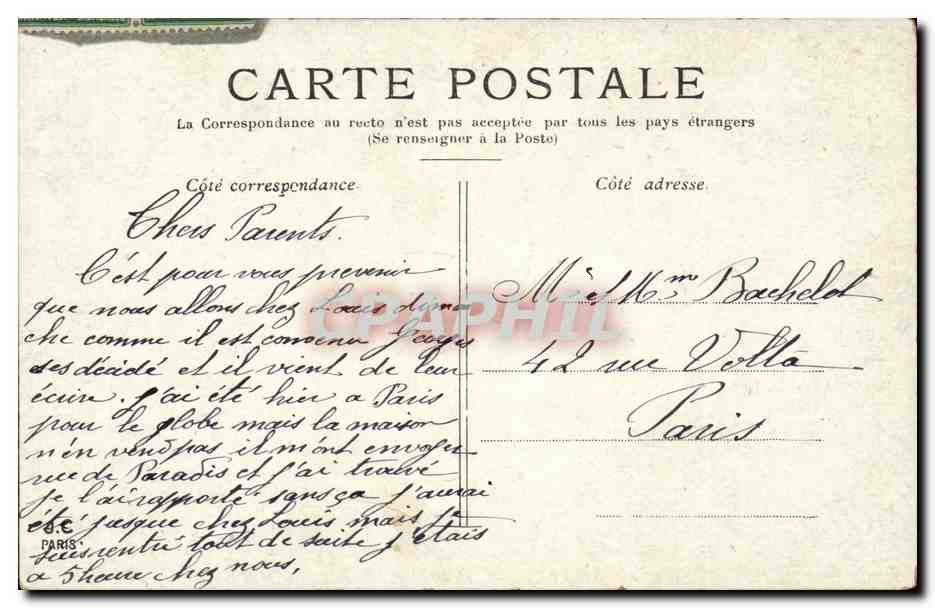 CARTE POSTALE
La Correspondance au recto n'est pas acceptée par tous les pays étrangers
(Se renseigner à la Poste)
Côté correspondance.
Chers Parents.
C'est pour vous prevenir
que nous allons chez Louis diman
che comme il est convenu Georges
s'est décidé et il vient de leur
écrire. j'ai été hier a Paris
pour le globe mais la maison
n'en vend pas il m'ont envoyer
rue de Paradis et j'ai trouvé
je l'ai rapporté sans ça j'aurai
été jusque chez Louis mais je
suis rentré tout de suite j'étais
a 5 heure chez nous,
J.C.
PARIS
Côté adresse.
Mr et Mme Bachelot
42 rue Volta
Paris
CPAPHIL